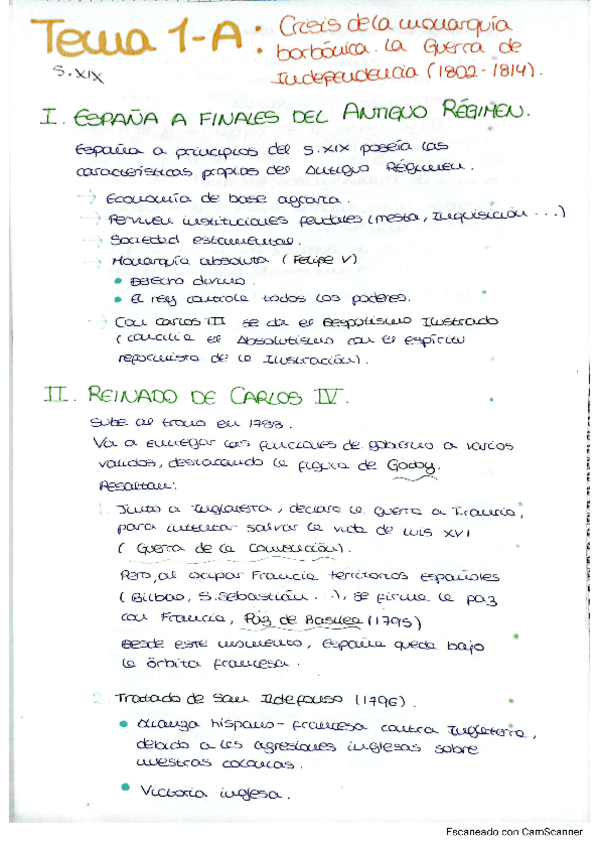 Tema 1-A: Crisis de la monarquía
borbónica. La Guerra de
Independencia (1802-1814).
S.XIX
I. ESPAÑA A FINALES DEL ANTIGUO RÉGIMEN.
España a principios del S.XIX poseía las
características propias del Antiguo Régimen.
→ Economía de base agraria.
→ Perviven instituciones feudales (mesta, Inquisición...)
→ Sociedad estamental.
→ Monarquía absoluta (Felipe V)
• Derecho divino.
• El rey controla todos los poderes.
→ Con Carlos III se da el Despotismo Ilustrado
(concilia el Absolutismo con el espíritu
reformista de la Ilustración).
II. REINADO DE CARLOS IV.
Sube al trono en 1788.
Va a entregar las funciones de gobierno a varios
validos, destacando la figura de Godoy.
Resaltan:
1. Junto a Inglaterra, declara la guerra a Francia,
para intentar salvar la vida de Luis XVI
(Guerra de la Convención).
Pero, al ocupar Francia territorios españoles
(Bilbao, S.Sebastián...), se firma la paz
con Francia, Paz de Basilea (1795)
Desde este momento, España queda bajo
la órbita francesa.
2. Tratado de San Ildefonso (1796).
• Alianza hispano-francesa contra Inglaterra,
debido a las agresiones inglesas sobre
nuestras colonias.
• Victoria inglesa.
Escaneado con CamScanner